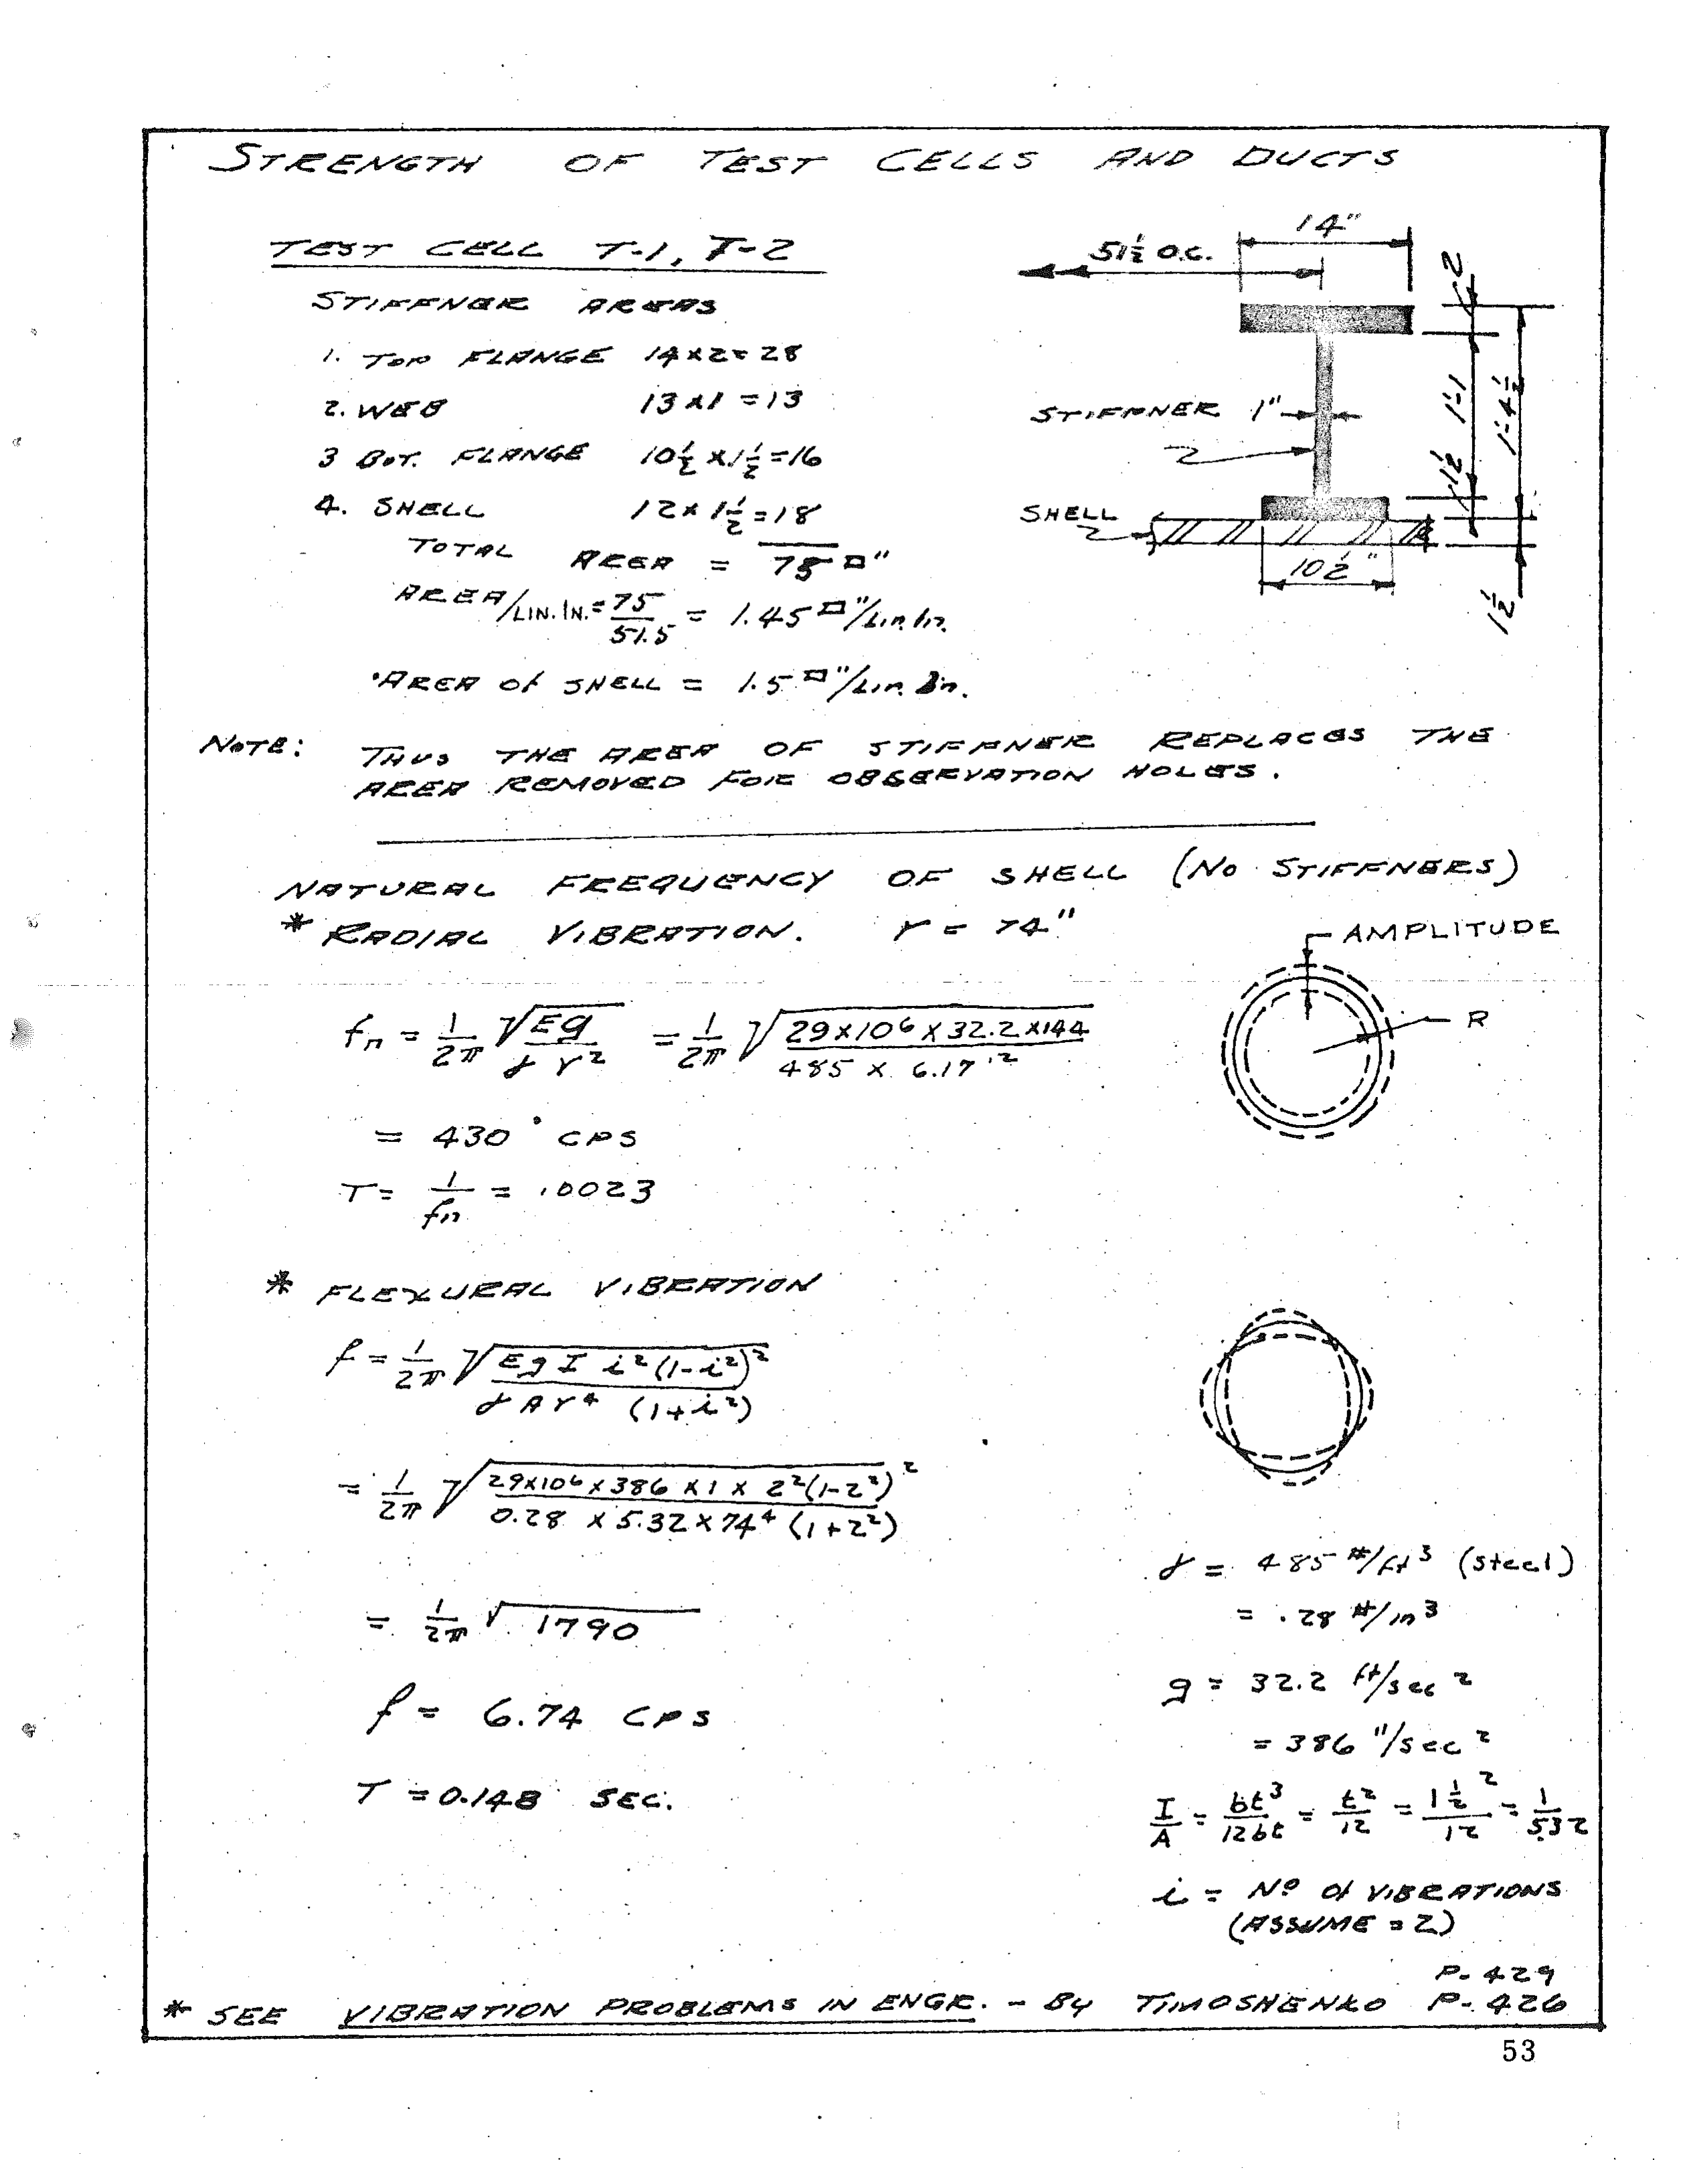 STRENGTH OF TEST CELLS AND DUCTS
TEST CELL T-1, T-2
STIFFNER AREAS
1. TOP FLANGE 14x2=28
2. WEB 13x1=13
3 BOT. FLANGE 10½x1½=16
4. SHELL 12x1½=18
TOTAL AREA = 75□"
AREA/LIN.IN.= 75/51.5 = 1.45□"/Lin.In.
AREA Of SHELL = 1.5□"/Lin. In.
51½ O.C.
14"
2
STIFFNER 1"
1'-1
1'-4½
1½
SHELL
10½"
1½
NOTE: THUS THE AREA OF STIFFNER REPLACES THE
AREA REMOVED FOR OBSERVATION HOLES.
NATURAL FREQUENCY OF SHELL (NO STIFFNERS)
* RADIAL VIBRATION. r = 74"
AMPLITUDE
R
fn = 1/2π √Eg/γr² = 1/2π √29x10⁶x32.2x144/485 x 6.17'²
= 430 CPS
T = 1/fn = .0023
* FLEXURAL VIBRATION
f = 1/2π √EgI i²(1-i²)²/γAr⁴ (1+i²)
= 1/2π √29x10⁶x386x1x 2²(1-2²)²/0.28 x 5.32x74⁴ (1+2²)
= 1/2π √1790
f = 6.74 CPS
T = 0.148 SEC.
γ = 485 #/ft³ (steel)
= .28 #/in³
g = 32.2 ft/sec²
= 386 "/sec²
I/A = bt³/12bt = t²/12 = 1½²/12 = 1/5.32
i = Nº Of VIBRATIONS
(ASSUME = 2)
P- 429
* SEE VIBRATION PROBLEMS IN ENGR. - By TIMOSHENKO P- 426
53